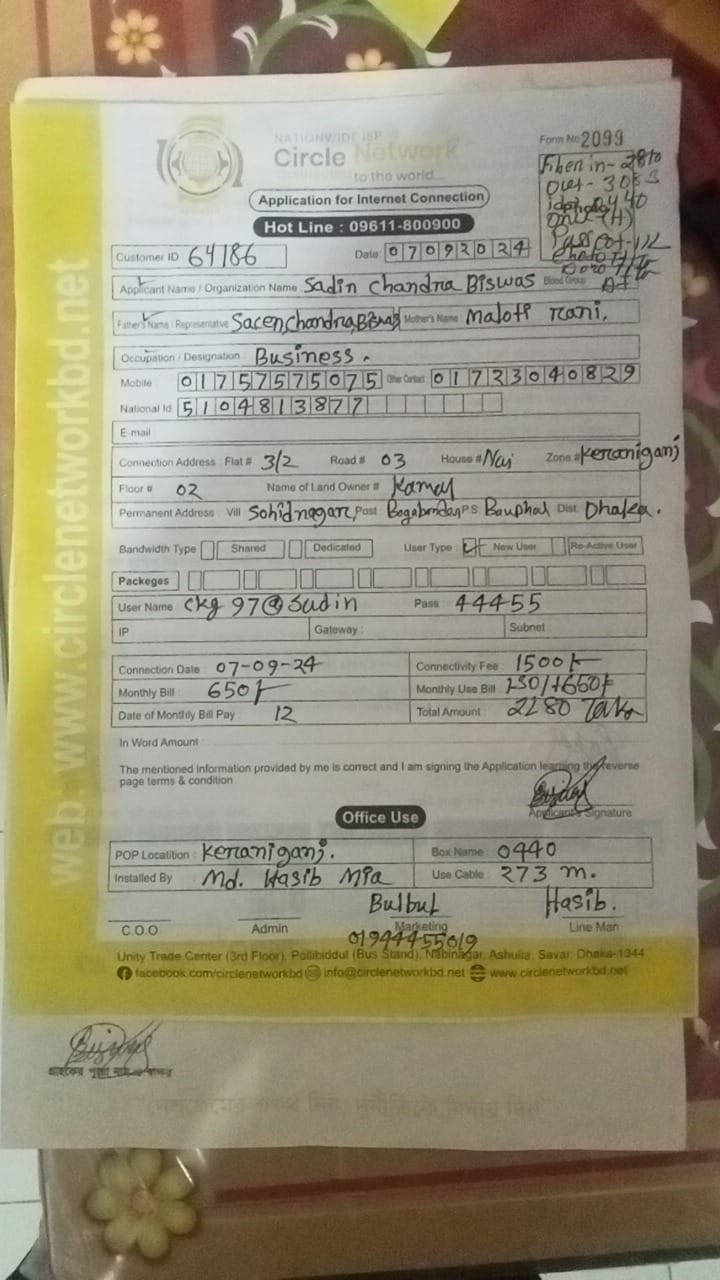 NATIONWIDE ISP
Circle Network
to the world...
Form No 2099
Fiber in - 2810
Out - 3083
Onu - (H)
Application for Internet Connection
Hot Line : 09611-800900
Customer ID 64186 Date: 07092024
Applicant Name / Organization Name Sadin Chandra Biswas Blood Group
Father's Name / Representative Sacen Chandra Biswas Mother's Name Maloti Rani.
Occupation / Designation : Business.
Mobile 01757575075 Other Contact 01723040829
National Id. 5104813877
E-mail
Connection Address : Flat # 3/2 Road # 03 House # Nai Zone # Keraniganj
Floor # 02 Name of Land Owner # Kamal
Permanent Address : Vill Sohidnagar, Post Bagabandar PS Bauphal Dist. Dhaka.
Bandwidth Type Shared Dedicated User Type : New User Re-Active User
Packeges
User Name ckg 97@Sudin Pass : 44455
IP Gateway : Subnet
Connection Date 07-09-24 Connectivity Fee : 1500/-
Monthly Bill : 650/- Monthly Use Bill 130/+650/-
Date of Monthly Bill Pay 12 Total Amount : 2280 Taka
In Word Amount :
The mentioned information provided by me is correct and I am signing the Application learning the reverse
page terms & condition
Applicant's Signature
Office Use
POP Locatition : Keraniganj. Box Name : 0440
Installed By Md. Hasib Mia Use Cable : 273 m.
Bulbul Hasib.
C.O.O Admin Marketing Line Man
01944455019
Unity Trade Center (3rd Floor), Pollibiddul (Bus Stand), Nabinagar, Ashulia, Savar, Dhaka-1344
facebook.com/circlenetworkbd info@circlenetworkbd.net www.circlenetworkbd.net
web : www.circlenetworkbd.net